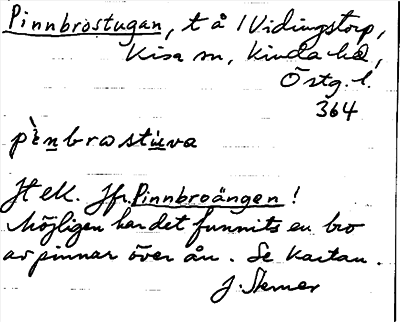 Pinnbrostugan, t å 1 Vidingstorp,
Kisa sn, Kinda hd,
Östg. l.
364
pènbrostùva
Jfr Pinnbroängen!
Möjligen har det funnits en bro
av pinnar över ån. Se kartan.
J. Stemer